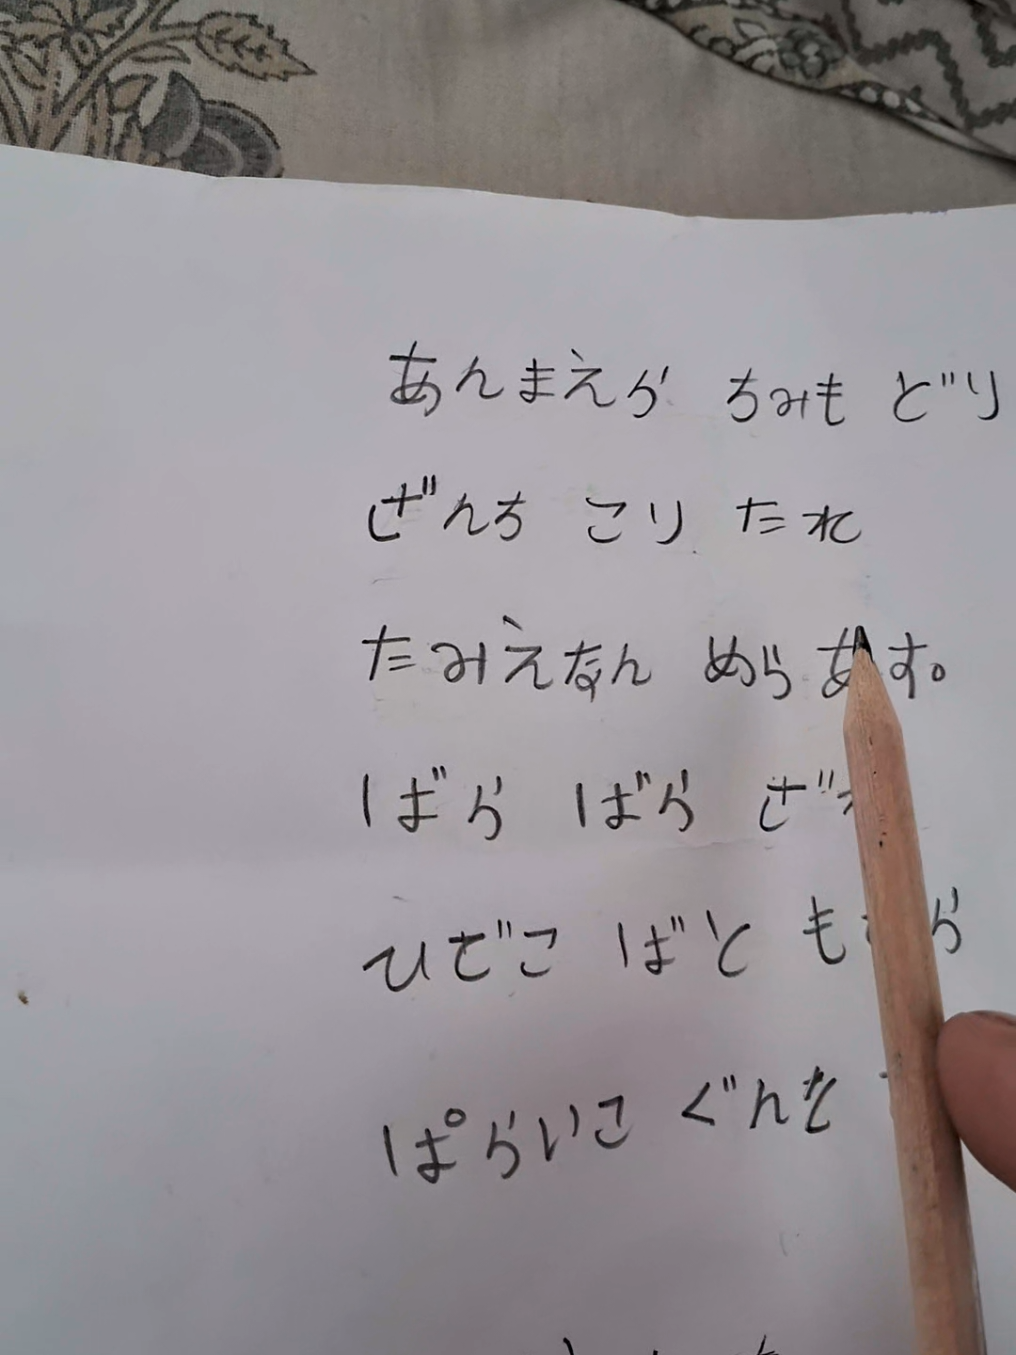 あんまえら ちみも どり
ざんち こり たれ
たみえなん めら あす。
ばら ばら
ひでこ ばと
ぱらいこ ぐんを